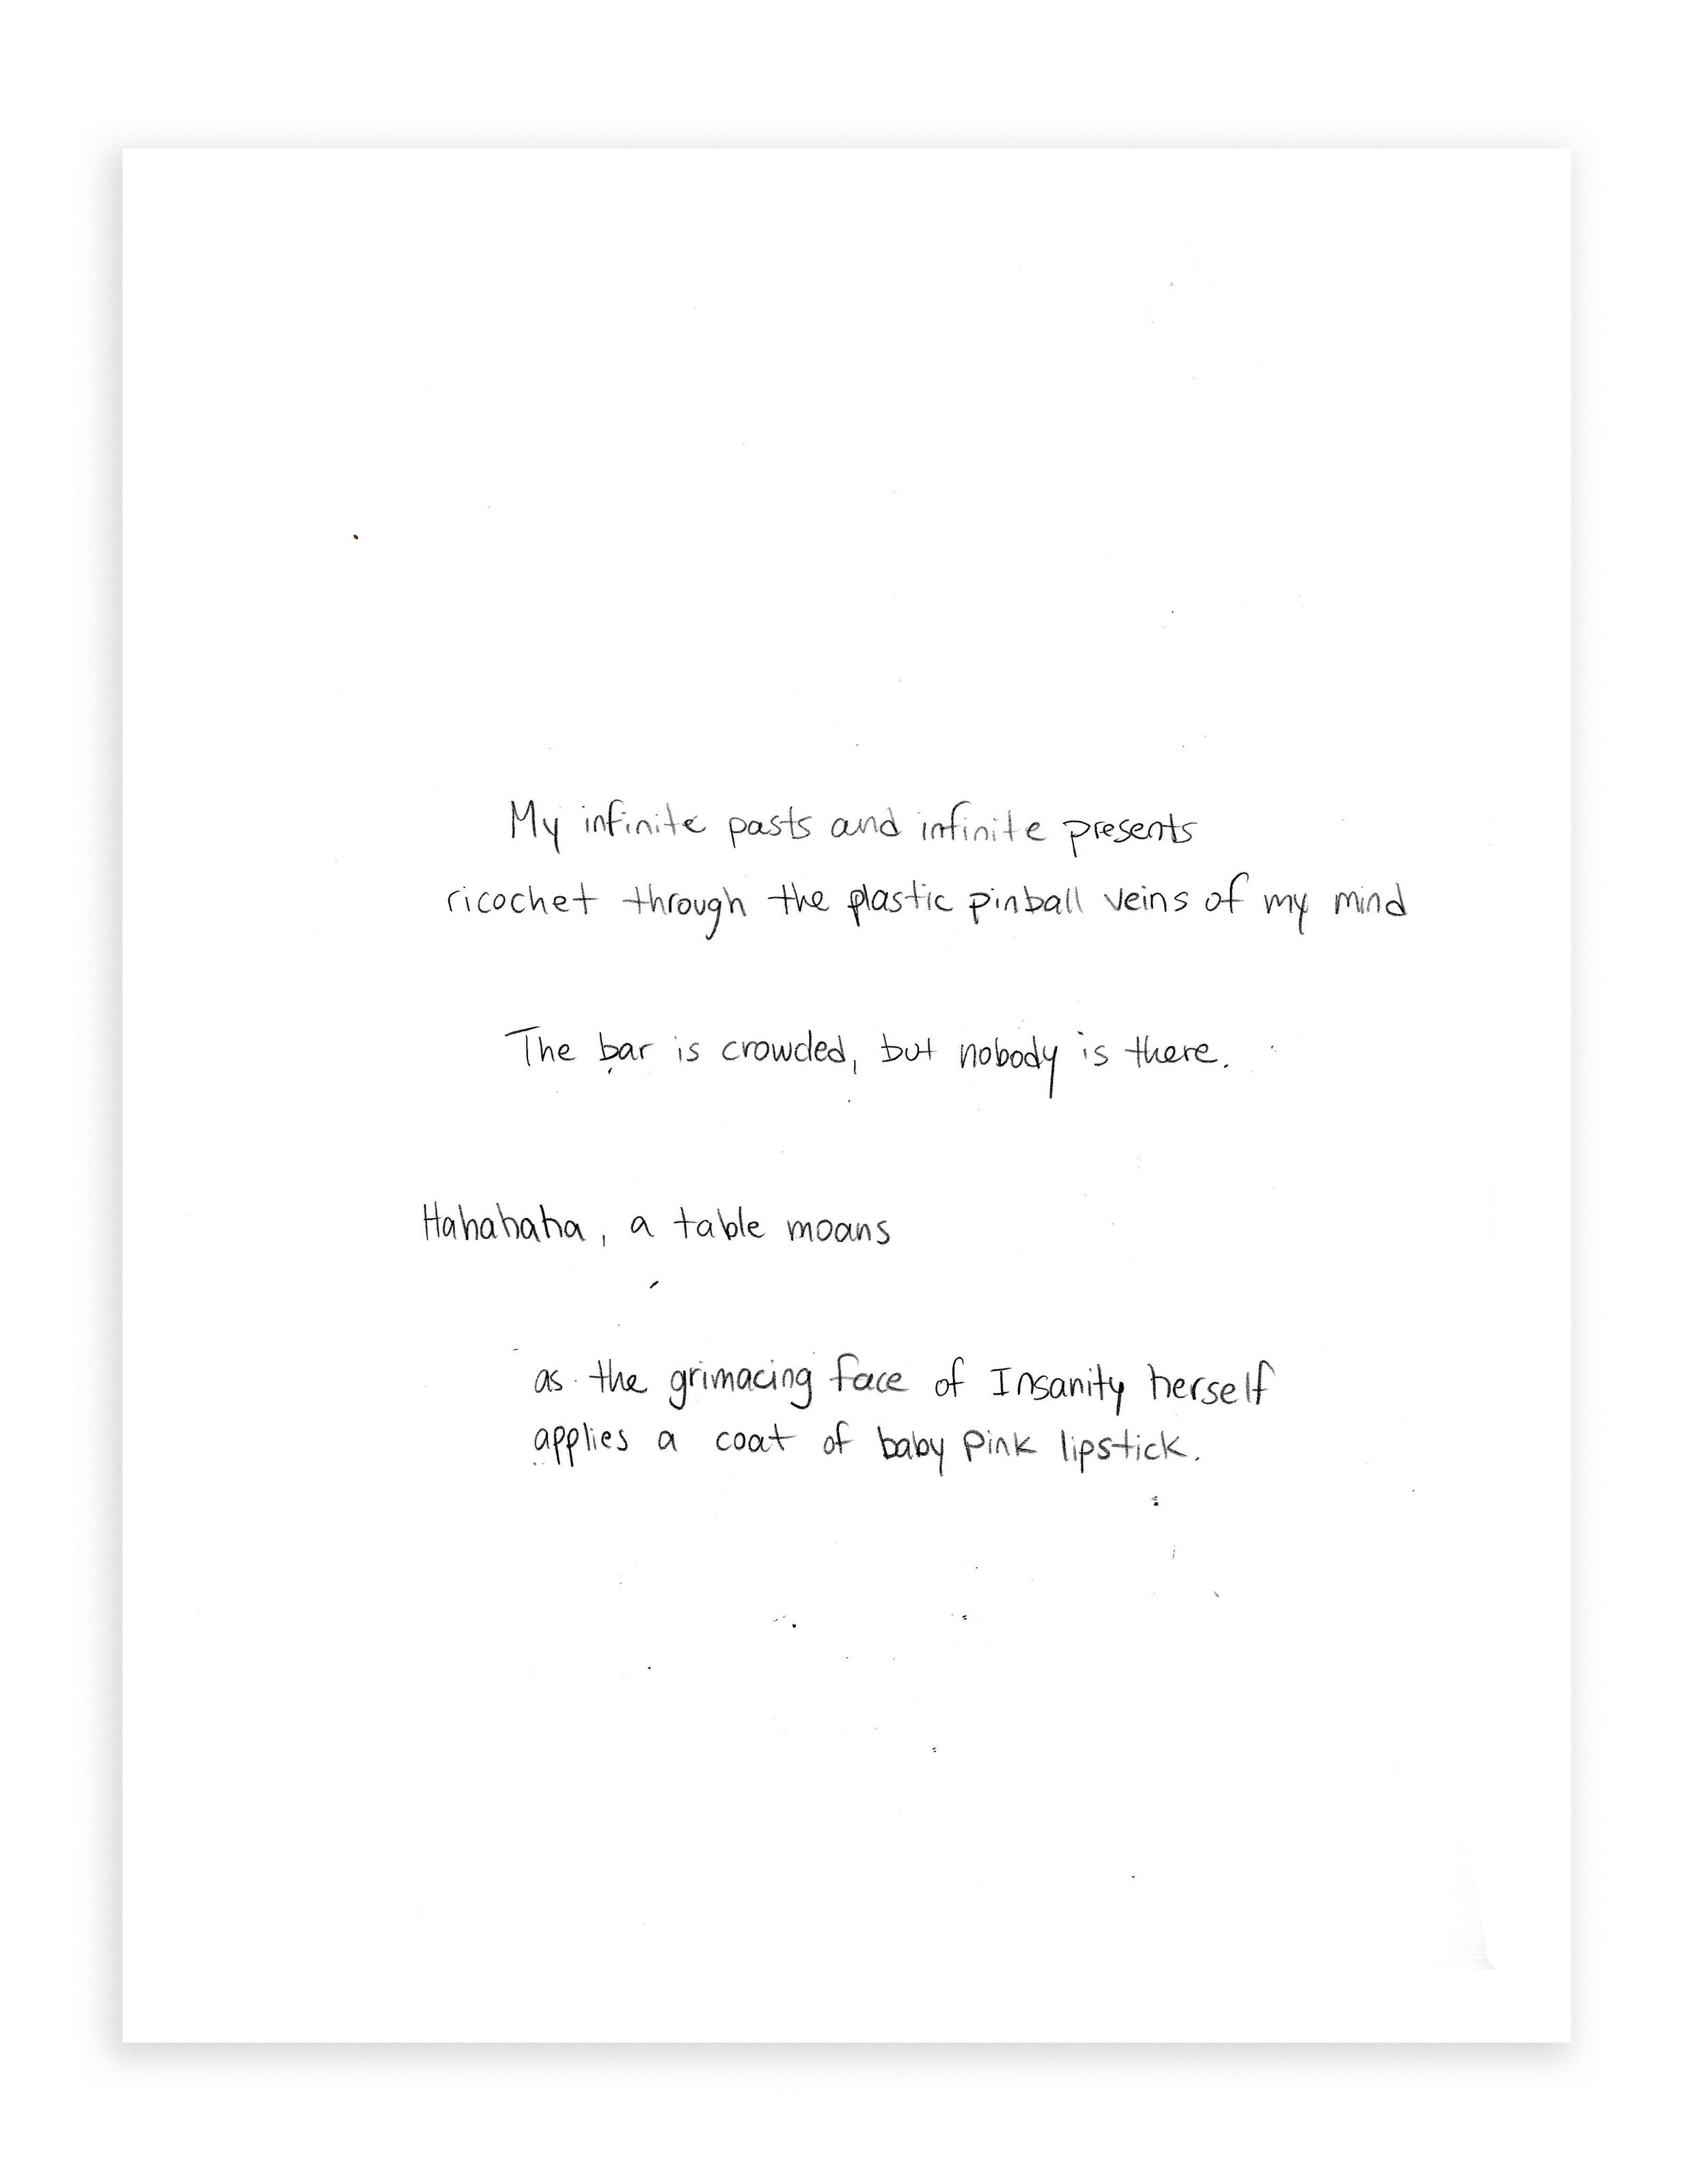 My infinite pasts and infinite presents
ricochet through the plastic pinball veins of my mind
The bar is crowded, but nobody is there.
Hahahaha, a table moans
as the grimacing face of Insanity herself
applies a coat of baby pink lipstick.